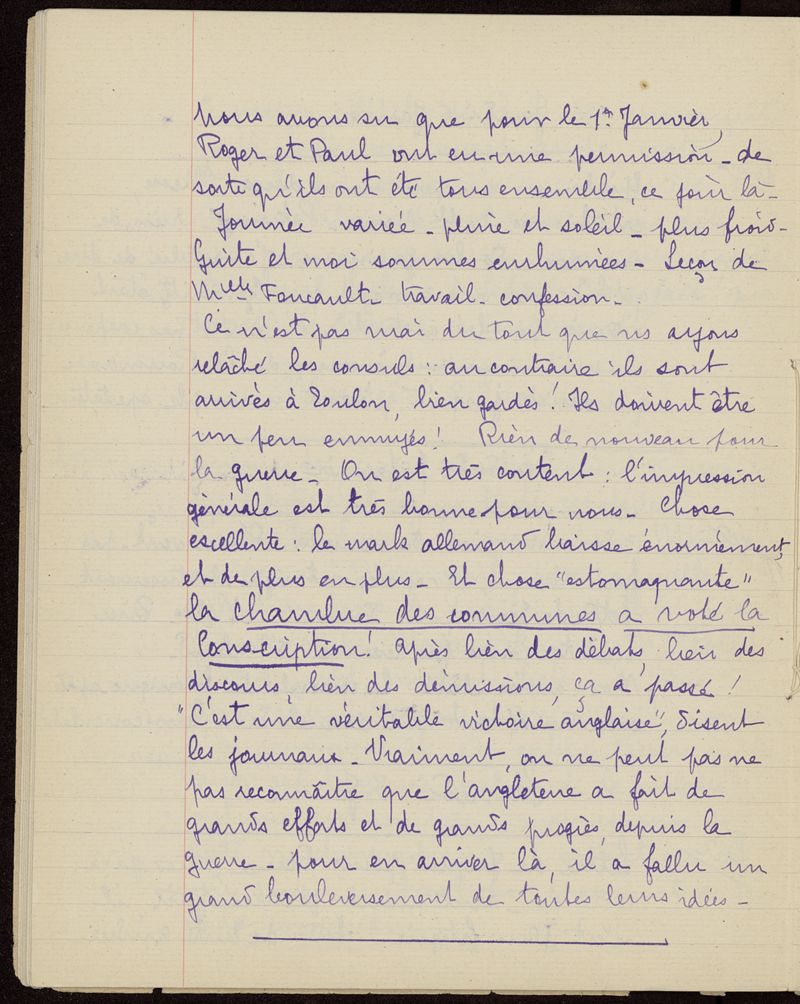 Nous avons su que pour le 1er Janvier,
Roger et Paul ont eu une permission _ de
sorte qu'ils ont été tous ensemble, ce jour là _
Journée variée _ pluie et soleil _ plus froid _
Guite et moi sommes enrhumées _ Leçon de
Melle Foucault _ travail _ confession _
Ce n'est pas vrai du tout que ns ayons
relâché les consuls : au contraire ils sont
arrivés à Toulon, bien gardés ! Ils doivent être
un peu ennuyés ! Rien de nouveau pour
la guerre _ On est très content : l'impression
générale est très bonne pour nous _ Chose
excellente : le mark allemand baisse énormément,
et de plus en plus _ Et chose "estomaquante"
la chambre des communes a voté la
Conscription ! Après bien des débats, bien des
discours, bien des démissions, ça a passé !
"C'est une véritable victoire anglaise", disent
les journaux _ Vraiment, on ne peut pas ne
pas reconnaître que l'angleterre a fait de
grands efforts et de grands progrès, depuis la
guerre _ pour en arriver là, il a fallu un
grand bouleversement de toutes leurs idées _